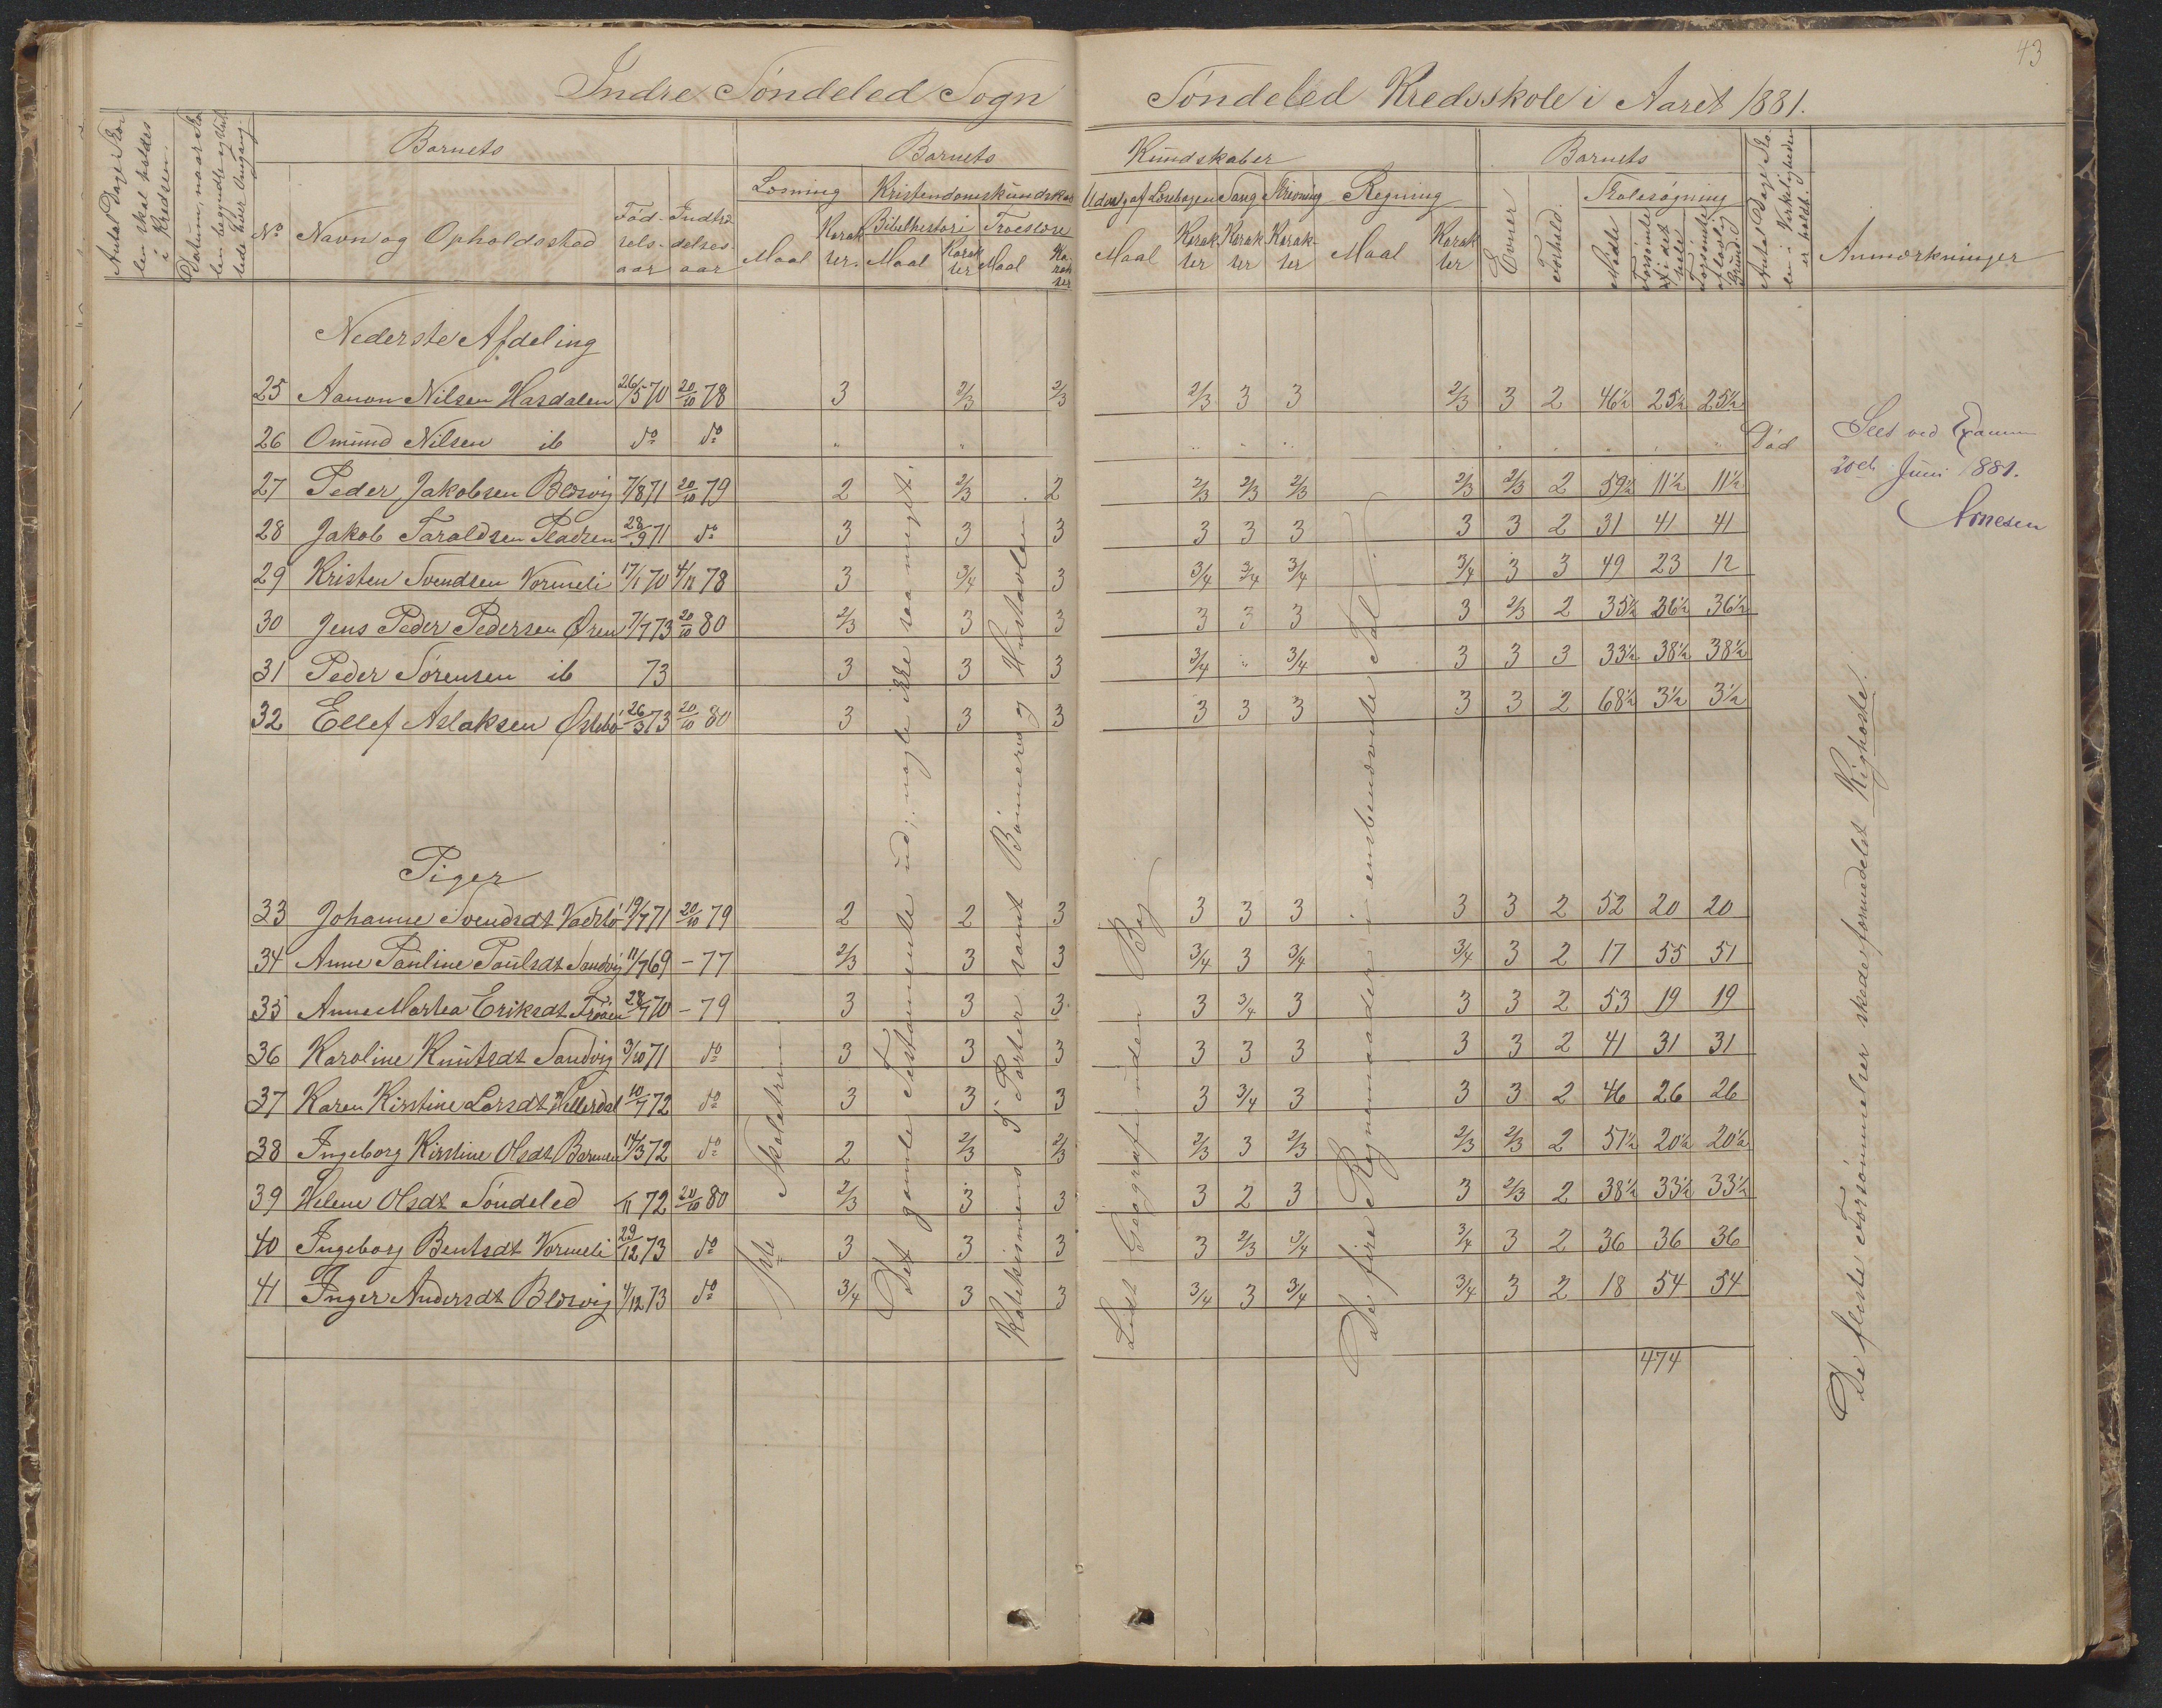 43
Indre Söndeled Sogn Söndeled Kredsskole i Aaret 1881.
Antal Dage Skolen skal holdes i Kredsen.
Datum, naar Skolen begyndte og sluttede hver Omgang.
Barnets
No
Navn og Opholdssted
Födselsaar
Indtrædelsesaar
Barnets Kundskaber
Læsning
Maal
Karakter
Kristendomskundskab
Bibelhistorie
Maal
Karakter
Troeslære
Maal
Karakter
Udvalg af Læsebogen
Maal
Karakter
Sang
Karakter
Skrivning
Karakter
Regning
Maal
Karakter
Barnets
Evner
Forhold
Skolesøgning
Mødte
Forsömte i det hele
Forsömte af lovlig Grund
Antal Dage Skolen i Virkeligheden er holdt.
Anmærkninger
Nederste Afdeling
25 Aanon Nilsen Hasdalen 26/5 70 20/10 78 3 2/3 2/3 2/3 3 3 2/3 3 2 46½ 25½ 25½
26 Omund Nilsen ib do do " " " " " Död
27 Peder Jakobsen Blesvig 7/8 71 20/10 79 2 2/3 2 2/3 2/3 2/3 2/3 2/3 2 59½ 11½ 11½
28 Jakob Taraldsen 28/9 71 do 3 3 3 3 3 3 3 3 2 31 41 41
29 Kristen Svendsen Vormeli 17/1 70 4/11 78 3 3/4 3 3/4 3/4 3/4 3/4 3 3 49 23 12
30 Jens Peder Pedersen Øren 7/7 73 20/10 80 2/3 3 3 3 3 3 3 2/3 2 35½ 36½ 36½
31 Peder Sörensen ib 73 3 3 3 3/4 " 3/4 3 3 3 33½ 38½ 38½
32 Ellef Aslaksen Østebö 26/3 73 20/10 80 3 3 3 3 3 3 3 3 2 68½ 3½ 3½
Piger
33 Johanne Svendsdt 19/7 71 20/10 79 2 2 3 3 3 3 3 3 2 52 20 20
34 Anne Pauline Paulsdt Sandvig 11/7 69 - 77 2/3 3 3 3/4 3 3/4 3/4 3 2 17 55 51
35 Anne Martea Eriksdt 28/7 70 - 79 3 3 3 3 3/4 3 3 3 2 53 19 19
36 Karoline Knutsdt Sandvig 3/10 71 do 3 3 3 3 3 3 3 3 2 41 31 31
37 Karen Kirstine Larsdt Hellersdal 10/7 72 do 3 3 3 3 3/4 3 3 3 2 46 26 26
38 Ingeborg Kirstine Olsdt 14/3 72 do 2 2/3 2/3 2/3 3 2/3 2/3 2/3 2 51½ 20½ 20½
39 Helene Olsdt Söndeled /11 72 20/10 80 2/3 3 3 3 2 3 3 2/3 2 38½ 33½ 33½
40 Ingeborg Bentsdt Vormeli 29/12 73 do 3 3 3 3 2/3 3/4 3/4 3 2 36 36 36
41 Inger Andersdt Blesvig 4/12 73 do 3/4 3 3 3/4 3 3/4 3/4 3 2 18 54 54
474
1ste Skoletrin.
Det gamle Testamente ud; nogle ikke saa meget.
Katekismens 5 Parter samt Bönnerne og Hustavlen
Lidt Geografi uden Bog
De fire Regnemaader i ensbenævnte Tal.
Seet ved Examen
20de Juni 1881.
Arnesen
De fleste Forsömmelser skede formedelst Kighoste.